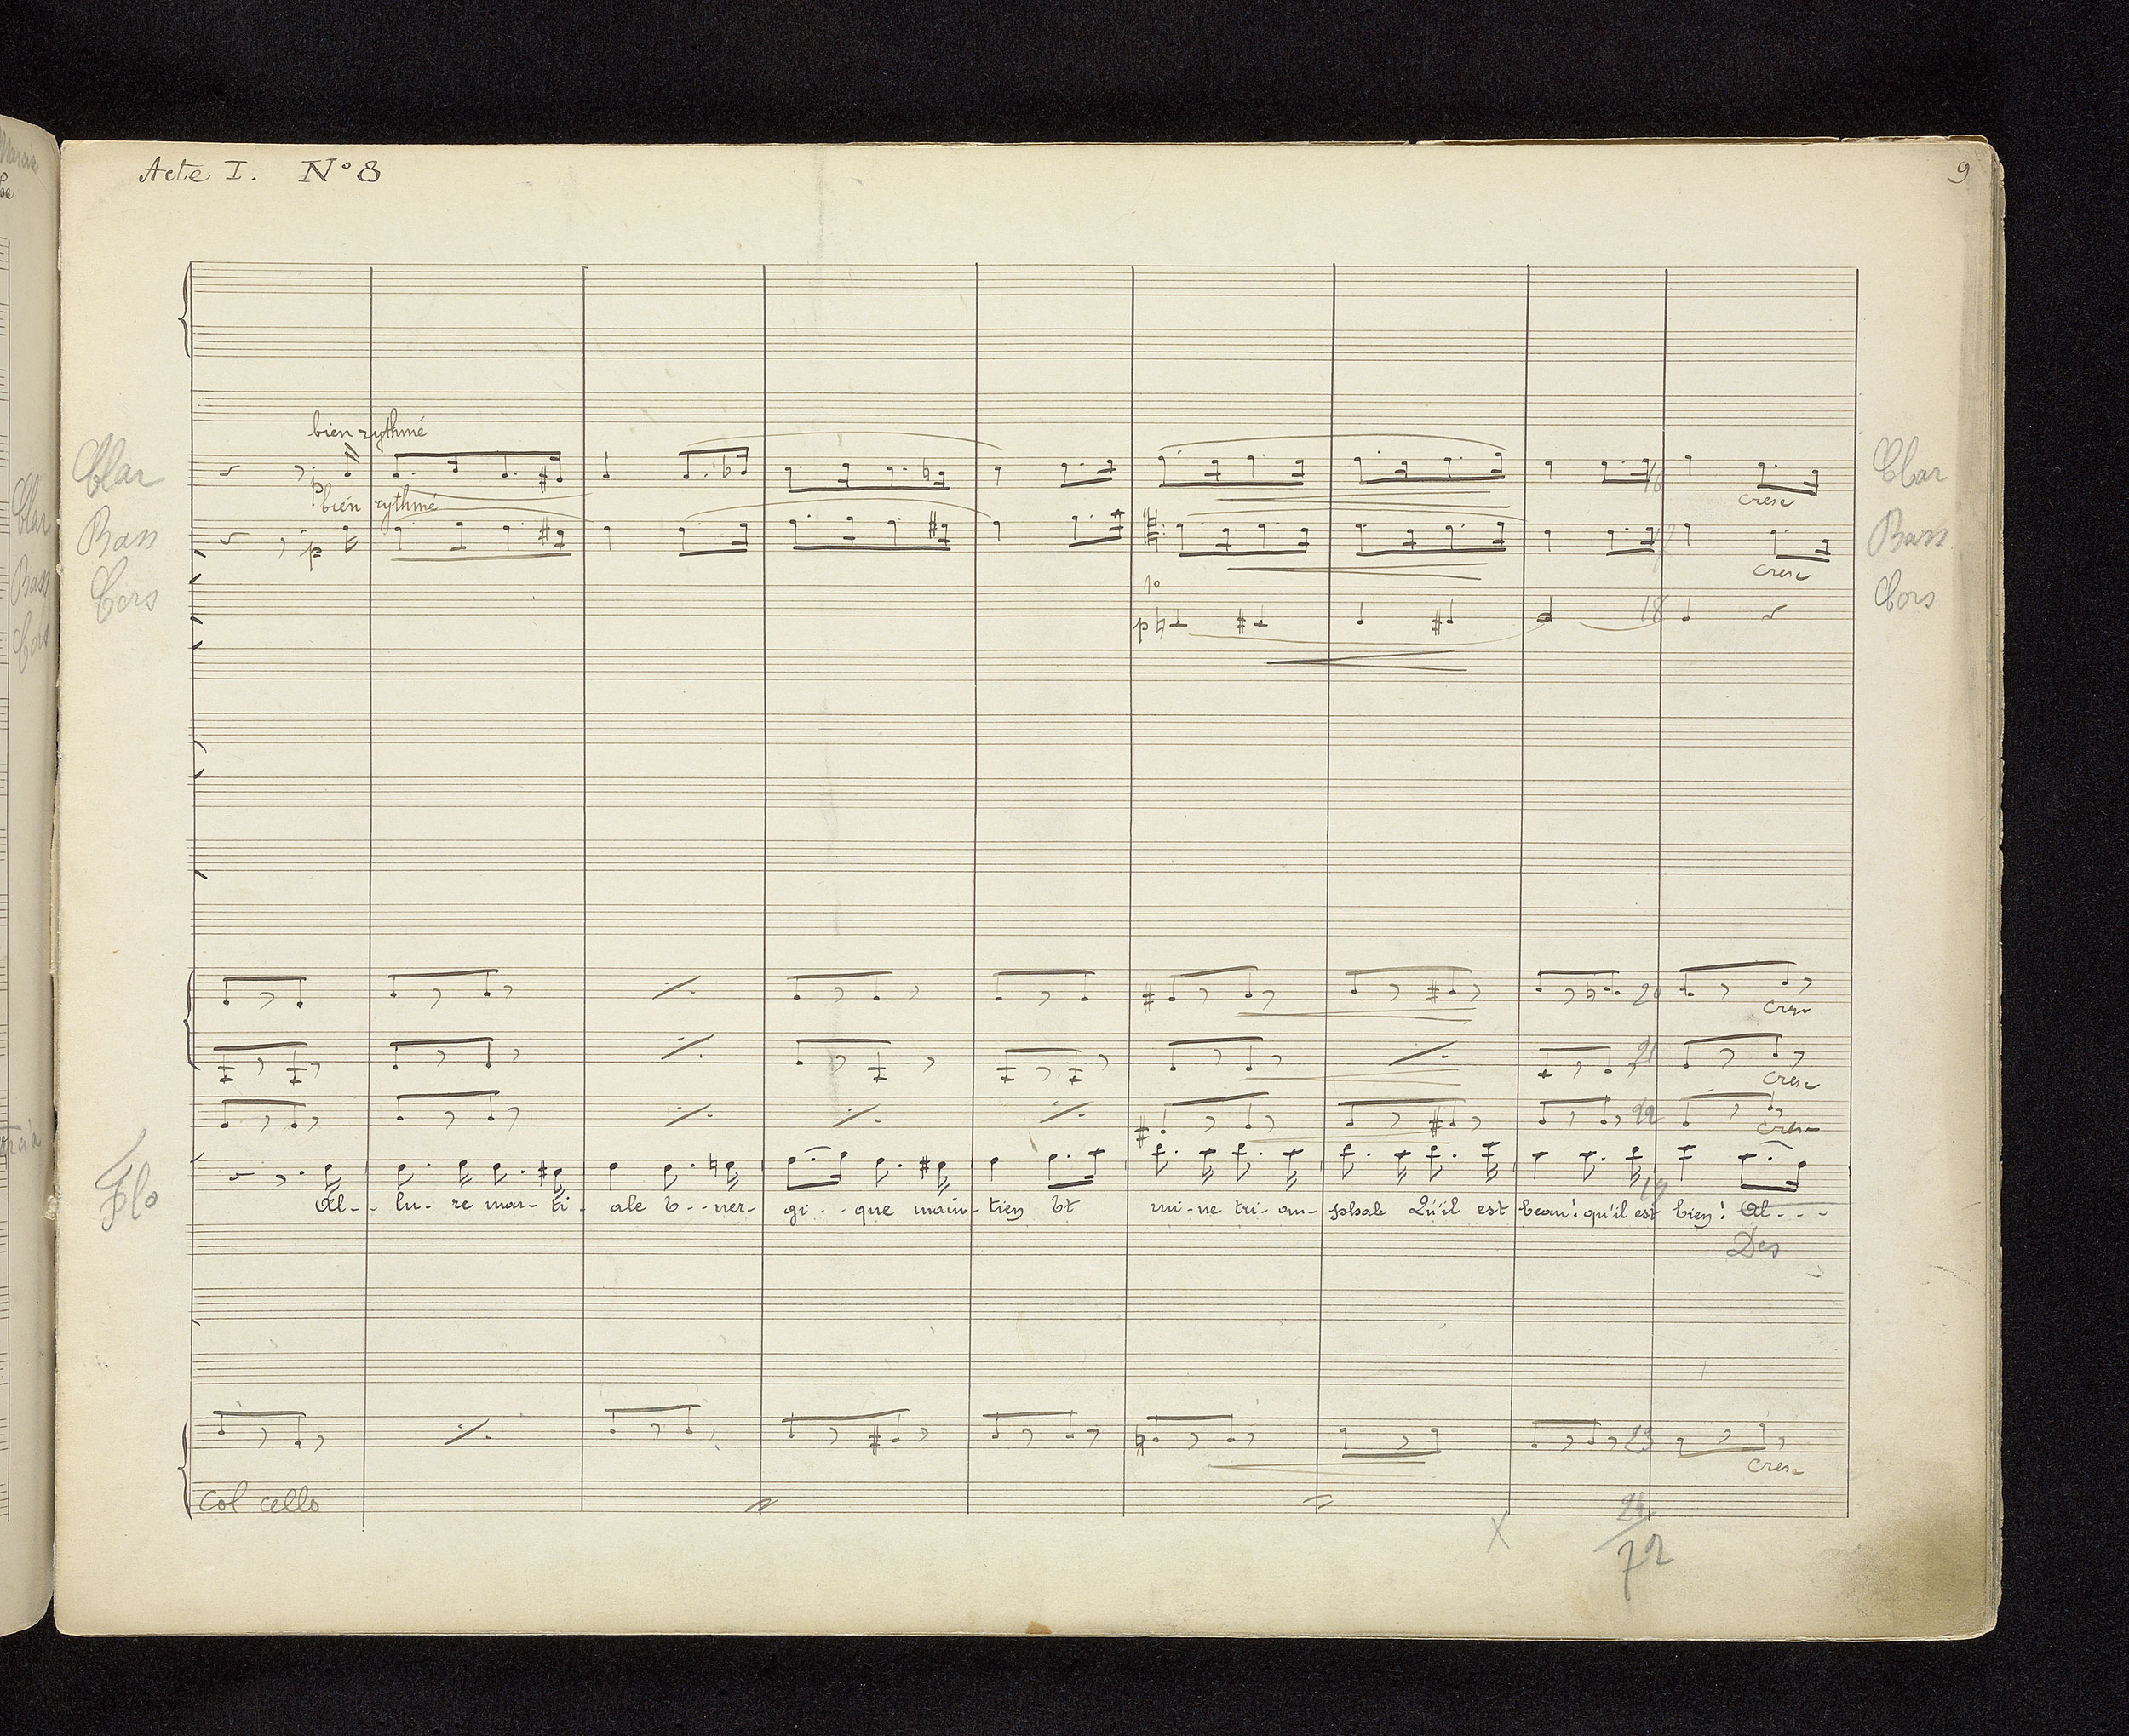 Acte I. N° 8
9
bien rythmé
Clar
p
Clar
cresc
bien rythmé
Bass
p
Bass
cresc
Cors
1°
p
Cors
16
17
18
20
cresc
21
cresc
22
cresc
Flo
19
Al- lu- re mar- ti- ale E- ner- gi- que main- tien Et mi- ne tri- om- phale Qu'il est beau! qu'il est bien! Al- - -
Des
23
cresc
Col cello
24
X
72
Clar
Bass
Cors